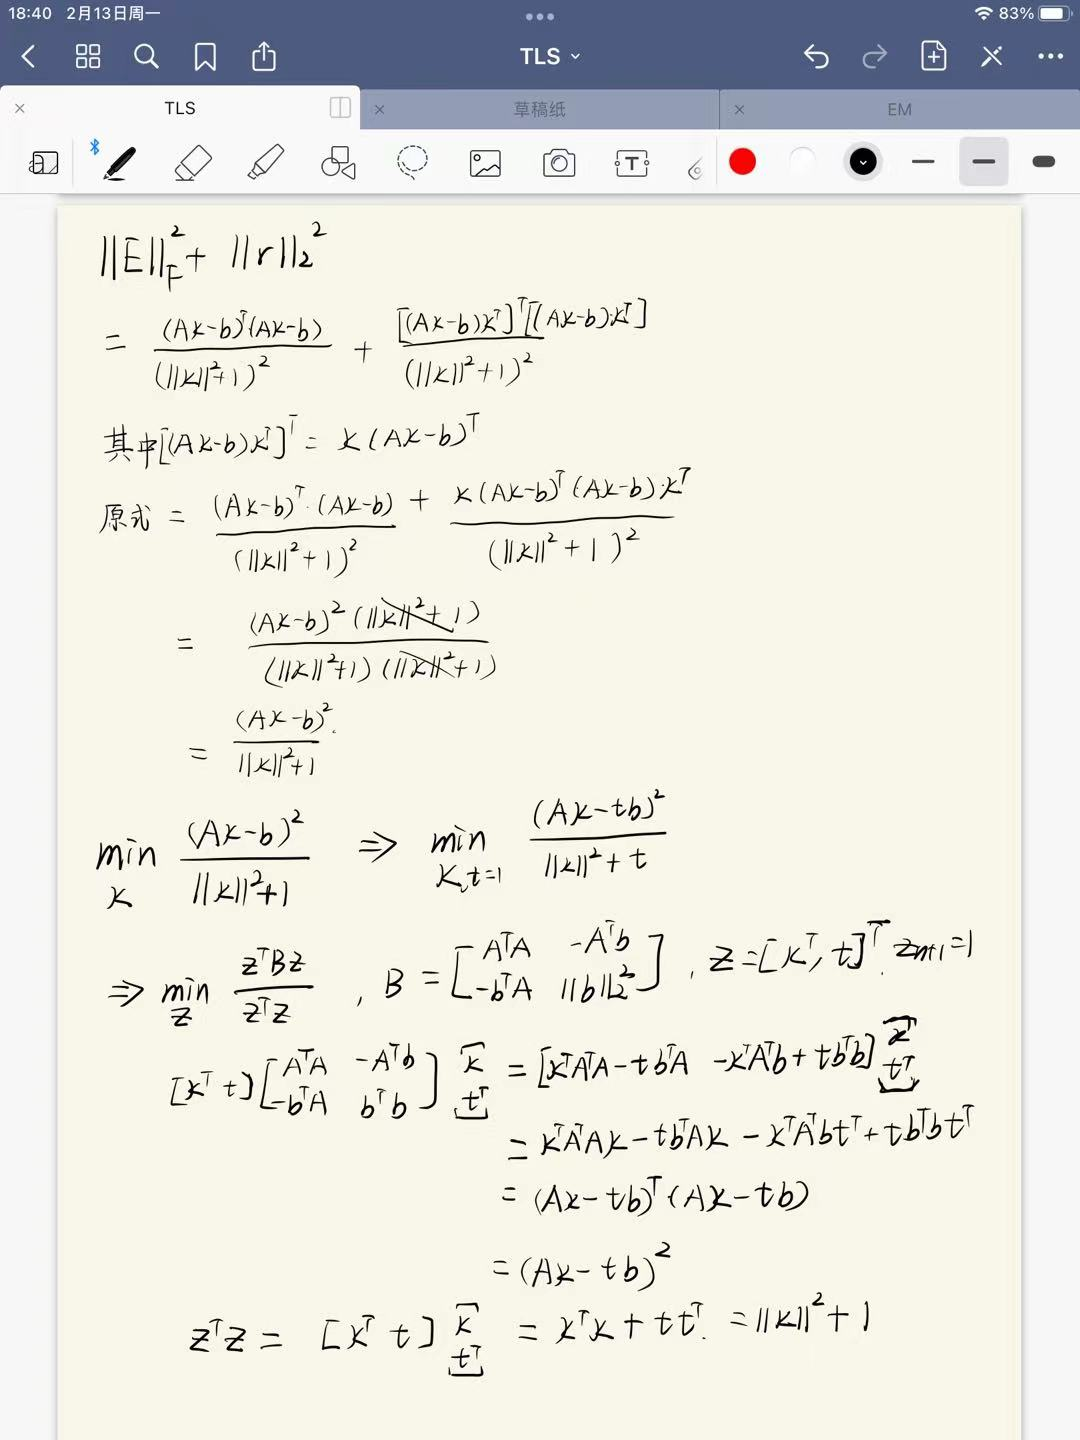 18:40 2月13日周一 83%
TLS
TLS 草稿纸 EM
||E||_F^2 + ||r||_2^2
= (Ax-b)^T(Ax-b) / (||x||^2+1)^2 + [(Ax-b)x^T]^T[(Ax-b)·x^T] / (||x||^2+1)^2
其中[(Ax-b)x^T]^T = x(Ax-b)^T
原式 = (Ax-b)^T·(Ax-b) / (||x||^2+1)^2 + x(Ax-b)^T(Ax-b)·x^T / (||x||^2+1)^2
= (Ax-b)^2(||x||^2+1) / (||x||^2+1)(||x||^2+1)
= (Ax-b)^2 / ||x||^2+1
min_x (Ax-b)^2 / ||x||^2+1 ⇒ min_{x,t=1} (Ax-tb)^2 / ||x||^2+t
⇒ min_z z^TBz / z^Tz , B = [A^TA -A^Tb; -b^TA ||b||_2^2], z=[x^T, t]^T, z_{n+1}=1
[x^T t][A^TA -A^Tb; -b^TA b^Tb][x; t^T] = [x^TA^TA-tb^TA -x^TA^Tb+tb^Tb][x^T; t^T]
= x^TA^TAx-tb^TAx-x^TA^Tbt^T+tb^Tbt^T
= (Ax-tb)^T(Ax-tb)
= (Ax-tb)^2
z^Tz = [x^T t][x; t^T] = x^Tx+tt^T. = ||x||^2+1